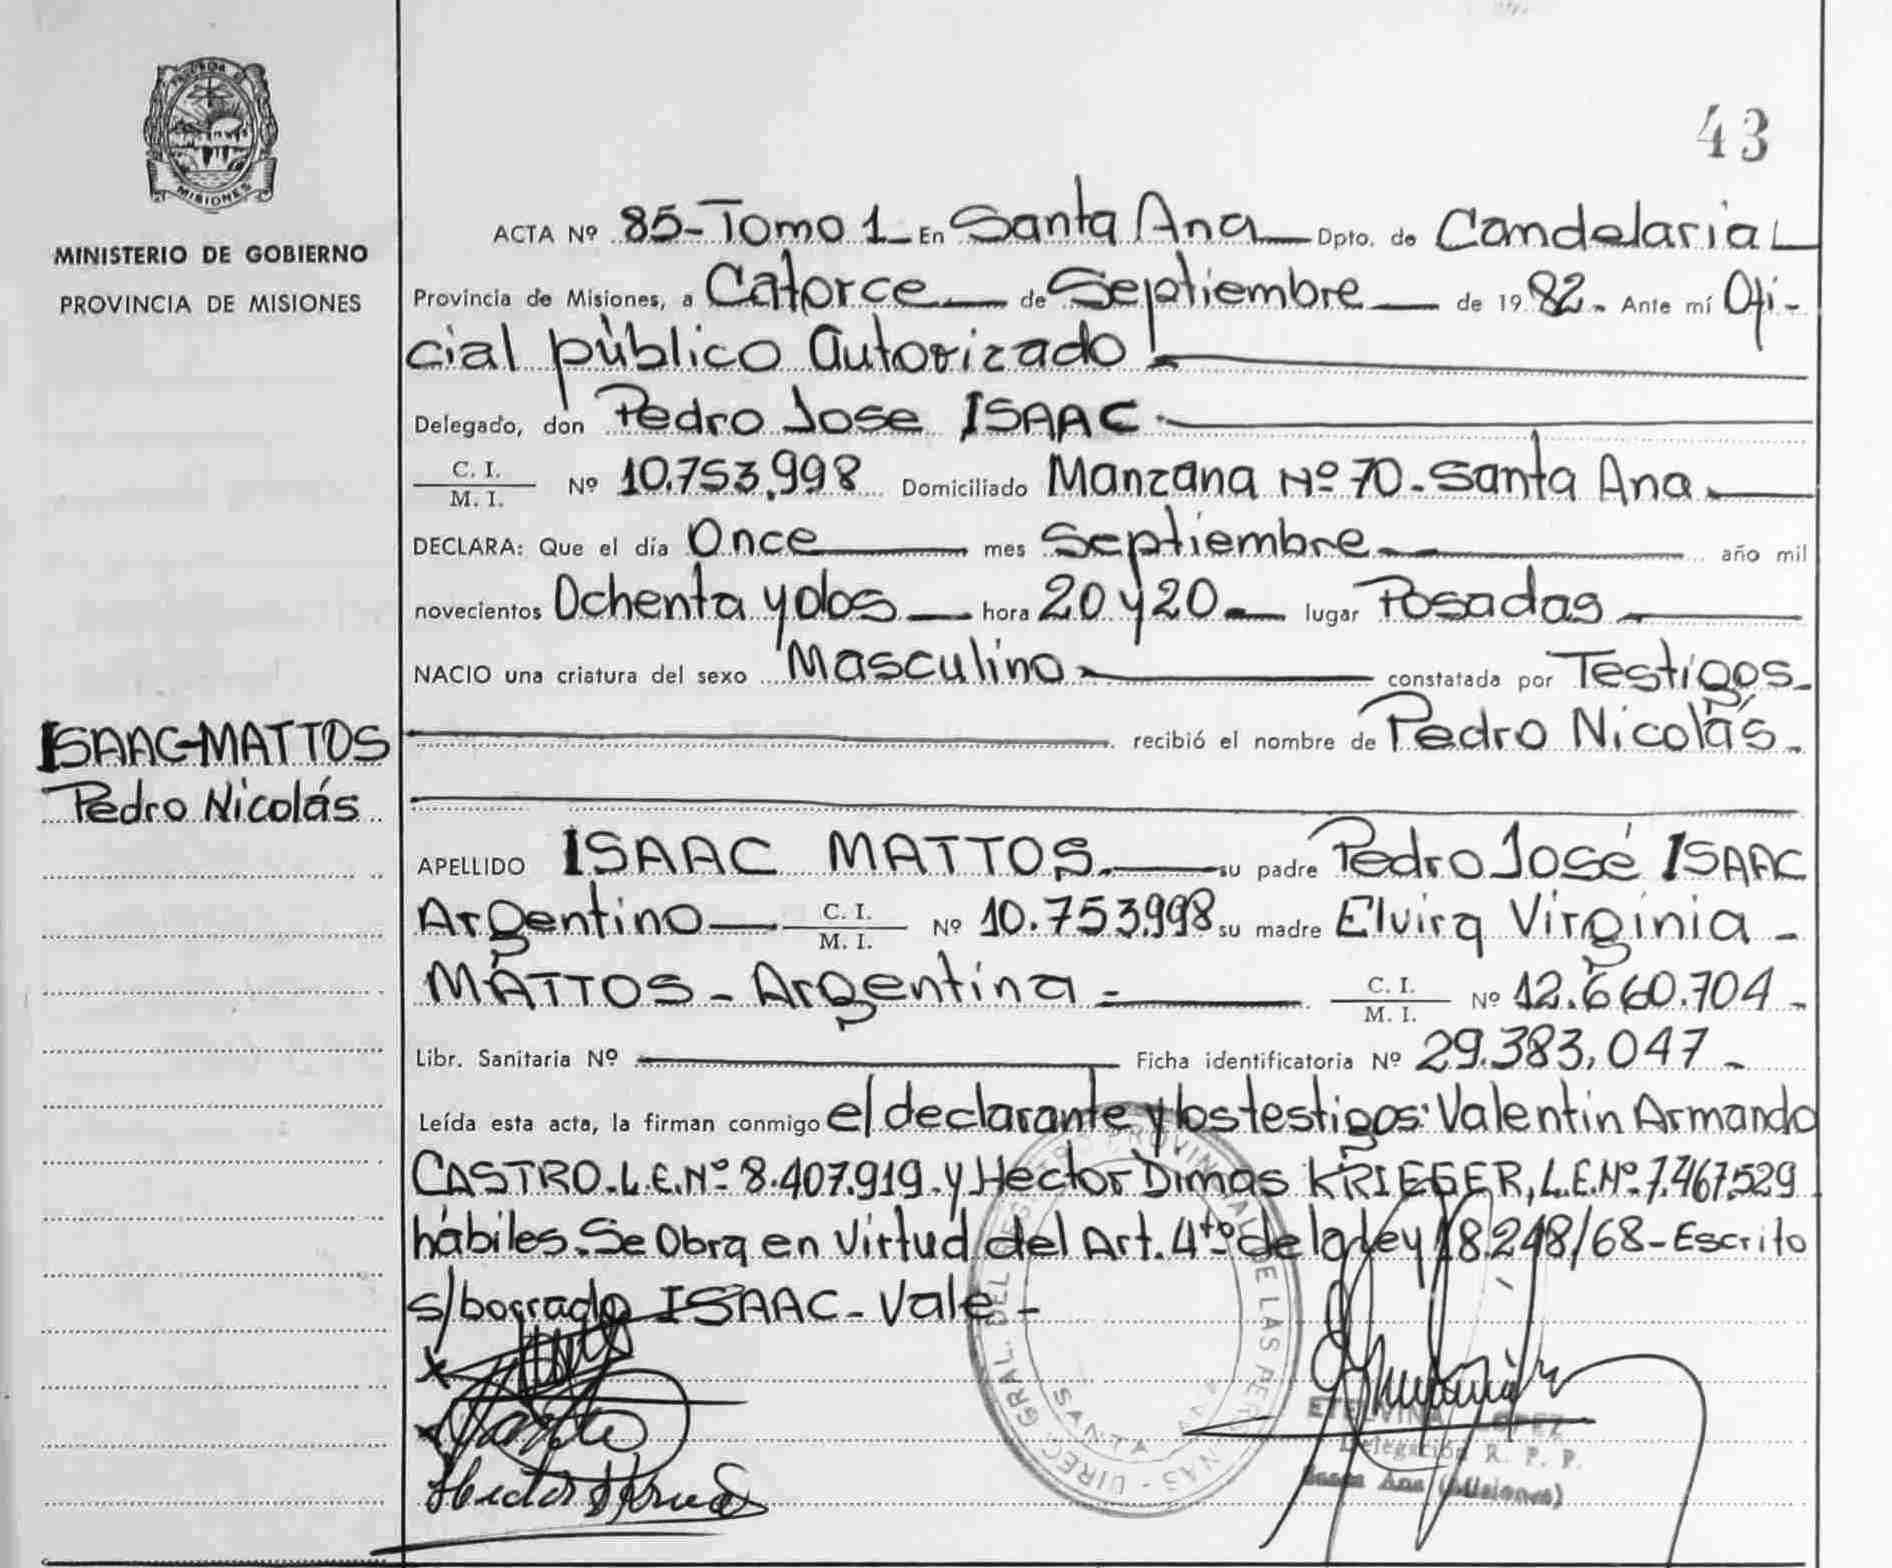 43
MISIONES
MINISTERIO DE GOBIERNO
PROVINCIA DE MISIONES
ACTA Nº 85-Tomo 1 En Santa Ana Dpto. de Candelaria
Provincia de Misiones, a Catorce de Septiembre de 1982. Ante mí Ofi-
cial público Autorizado
Delegado, don Pedro Jose ISAAC
C. I.
M. I. Nº 10.753.998 Domiciliado Manzana Nº 70. Santa Ana
DECLARA: Que el día Once mes Septiembre año mil
novecientos Ochenta y dos hora 20 y 20 lugar Posadas
NACIO una criatura del sexo Masculino constatada por Testigos
recibió el nombre de Pedro Nicolás
ISAAC-MATTOS
Pedro Nicolás
APELLIDO ISAAC MATTOS su padre Pedro José ISAAC
Argentino C. I.
M. I. Nº 10.753.998 su madre Elvira Virginia
MATTOS - Argentina C. I.
M. I. Nº 12.660.704
Libr. Sanitaria Nº Ficha identificatoria Nº 29.383,047
Leída esta acta, la firman conmigo el declarante y los testigos: Valentin Armando
CASTRO. L.E.Nº 8.407.919. y Hector Dimas KRIEGER, L.E.Nº. 7.467.529
hábiles. Se Obra en Virtud del Art. 4to de la ley 18.248/68 - Escrito
s/borrado ISAAC - Vale
DIREC. GRAL. DEL REGISTRO PROVINCIAL DE LAS PERSONAS
SANTA ANA
ETELVINA LOPEZ
Delegación R. P. P.
Santa Ana (Misiones)